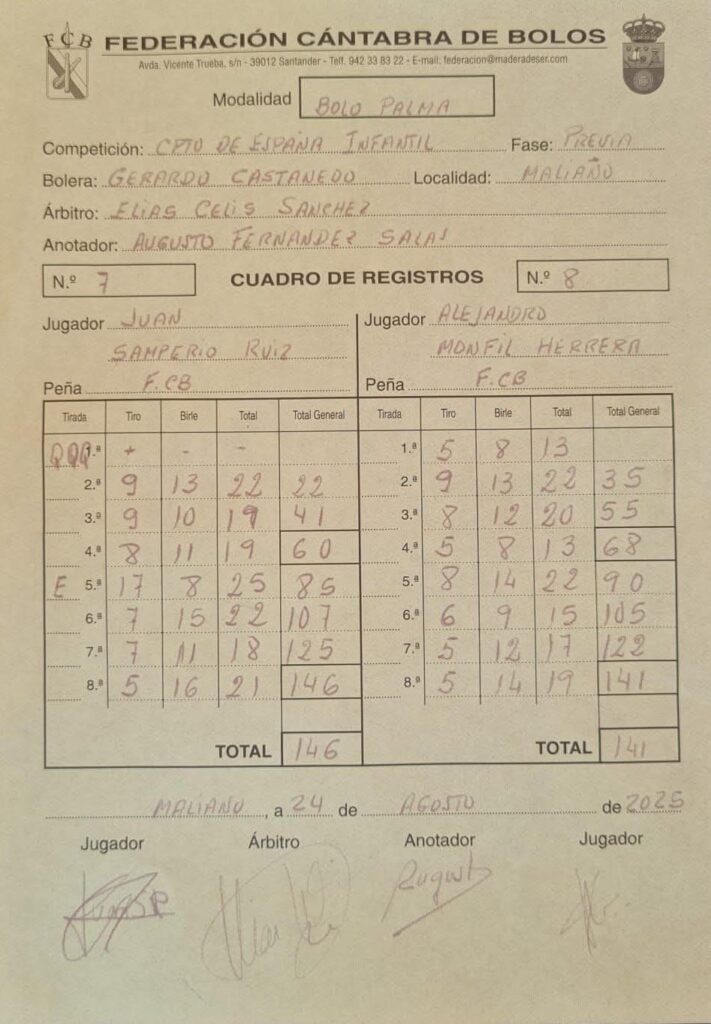 FCB FEDERACIÓN CÁNTABRA DE BOLOS
Avda. Vicente Trueba, s/n - 39012 Santander - Telf. 942 33 83 22 - E-mail: federacion@maderadeser.com
Modalidad BOLO PALMA
Competición: CPTO DE ESPAÑA INFANTIL Fase: PREVIA
Bolera: GERARDO CASTANEDO Localidad: MALIAÑO
Árbitro: ELIAS CELIS SANCHEZ
Anotador: AUGUSTO FERNANDEZ SALAS
N.º 7 CUADRO DE REGISTROS N.º 8
Jugador JUAN Jugador ALEJANDRO
SAMPERIO RUIZ MONFIL HERRERA
Peña F.CB Peña F.CB
Tirada Tiro Birle Total Total General Tirada Tiro Birle Total Total General
1.ª + - - 1.ª 5 8 13
2.ª 9 13 22 22 2.ª 9 13 22 35
3.ª 9 10 19 41 3.ª 8 12 20 55
4.ª 8 11 19 60 4.ª 5 8 13 68
E 5.ª 17 8 25 85 5.ª 8 14 22 90
6.ª 7 15 22 107 6.ª 6 9 15 105
7.ª 7 11 18 125 7.ª 5 12 17 122
8.ª 5 16 21 146 8.ª 5 14 19 141
TOTAL 146 TOTAL 141
MALIAÑO, a 24 de AGOSTO de 2025
Jugador Árbitro Anotador Jugador